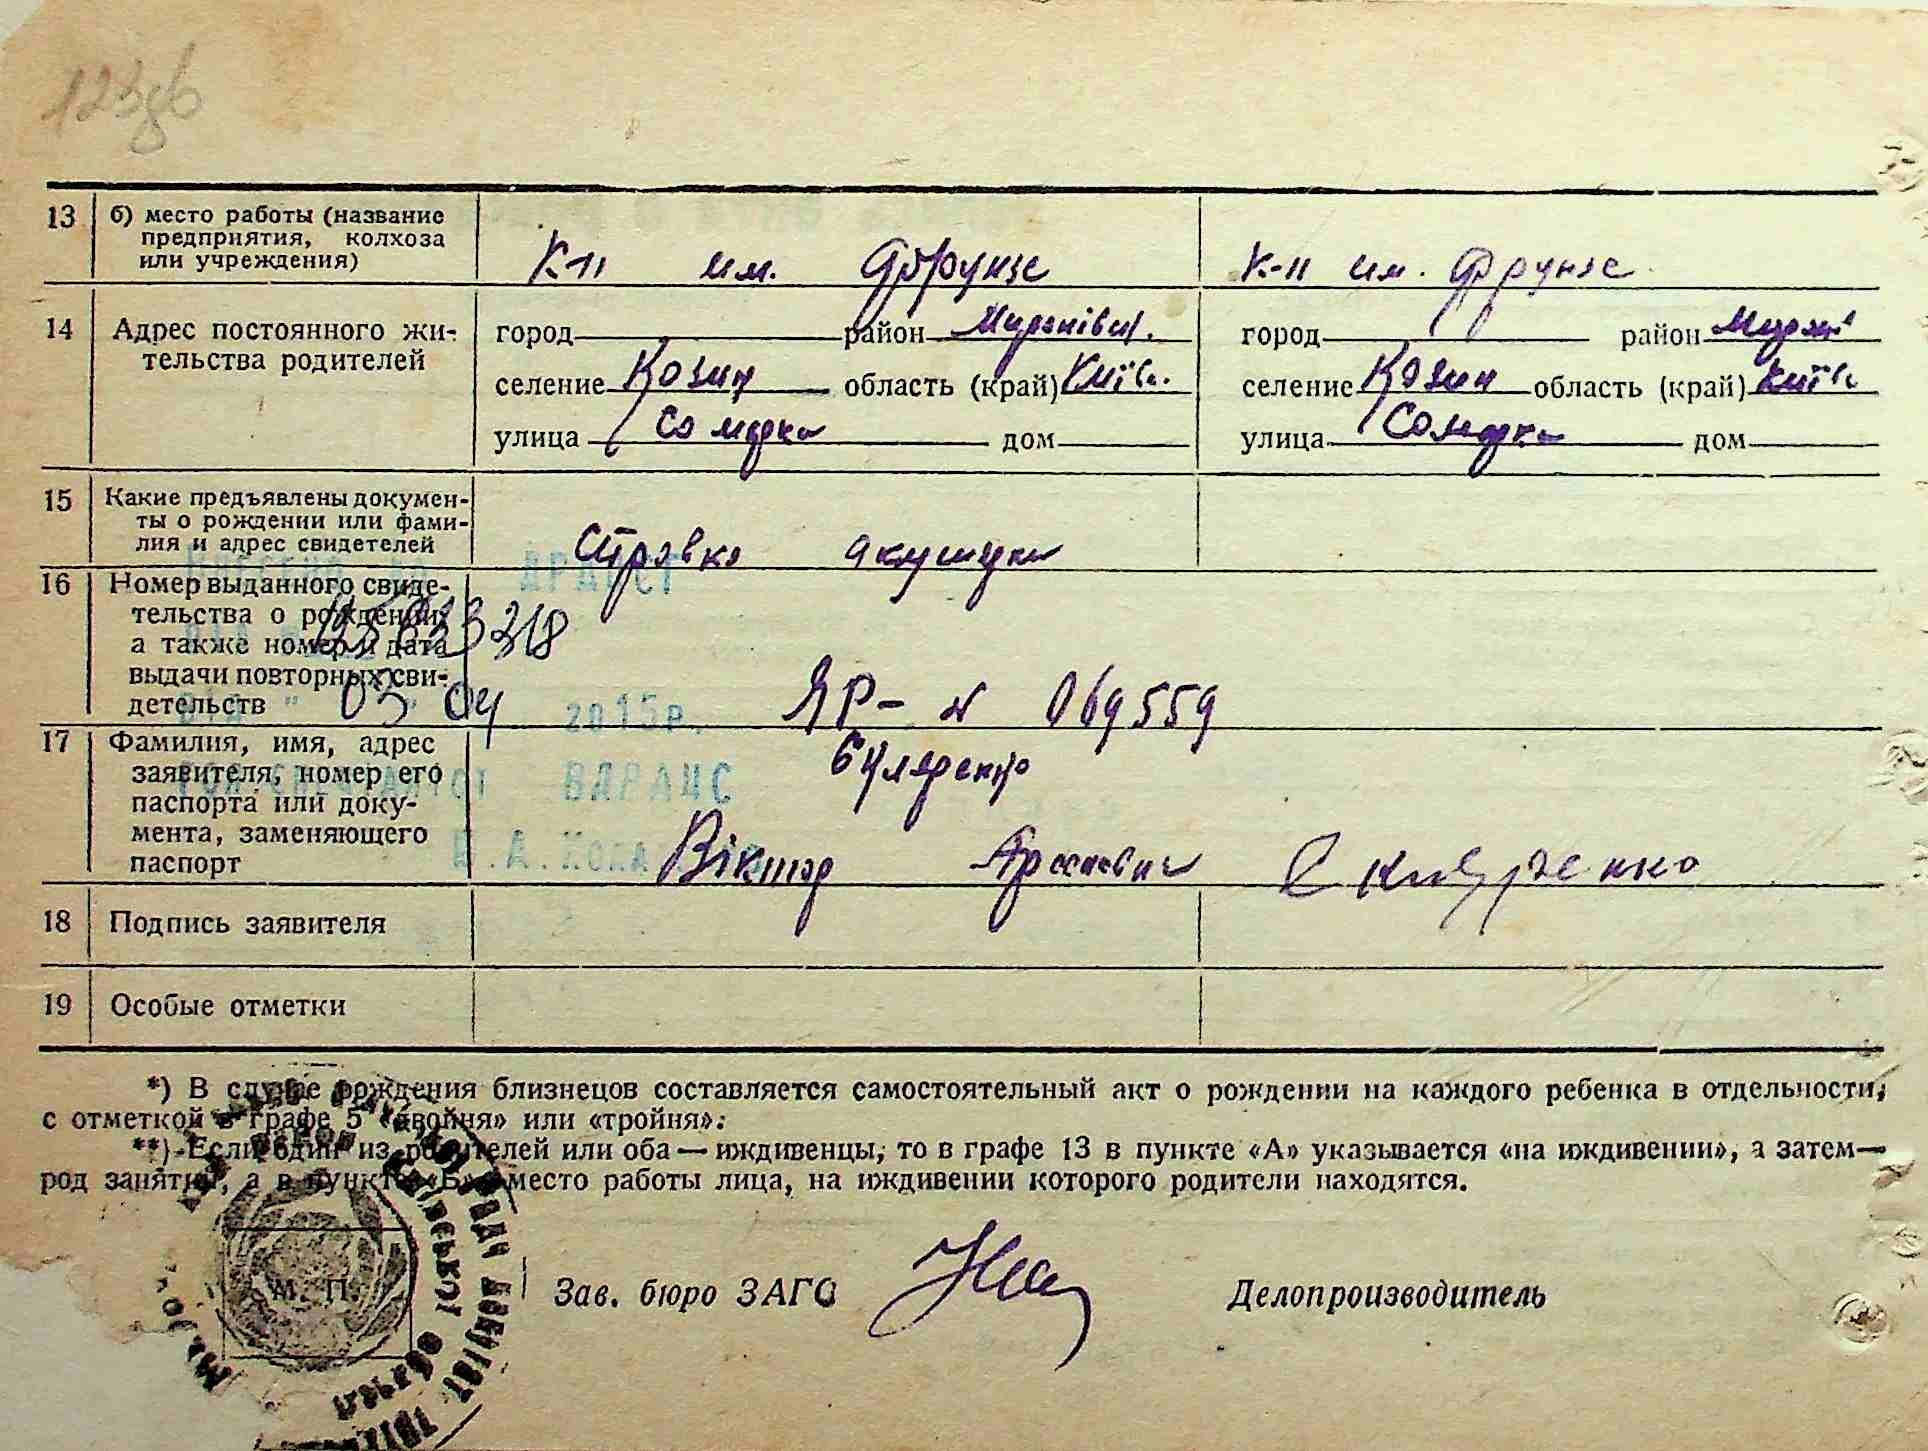 13 б) место работы (название
предприятия, колхоза
или учреждения)
К-п им. Фрунзе
К-п им. Фрунзе
14 Адрес постоянного жи-
тельства родителей
город район Миронівськ.
селение Козин область (край) Київ.
улица дом
город район Мирон
селение Козин область (край) Київ
улица дом
15 Какие предъявлены докумен-
ты о рождении или фами-
лия и адрес свидетелей
акушерки
16 Номер выданного свиде-
тельства о рождении,
а также номер и дата
выдачи повторных сви-
детельств
03 04 2015р.
ЯР- № 069559
17 Фамилия, имя, адрес
заявителя, номер его
паспорта или доку-
мента, заменяющего
паспорт
Віктор
18 Подпись заявителя
19 Особые отметки
*) В случае рождения близнецов составляется самостоятельный акт о рождении на каждого ребенка в отдельности,
с отметкой в графе 5 «двойня» или «тройня».
**) Если один из родителей или оба — иждивенцы, то в графе 13 в пункте «А» указывается «на иждивении», а затем—
род занятий, а в пункте «Б»—место работы лица, на иждивении которого родители находятся.
М. П.
Зав. бюро ЗАГС
Делопроизводитель